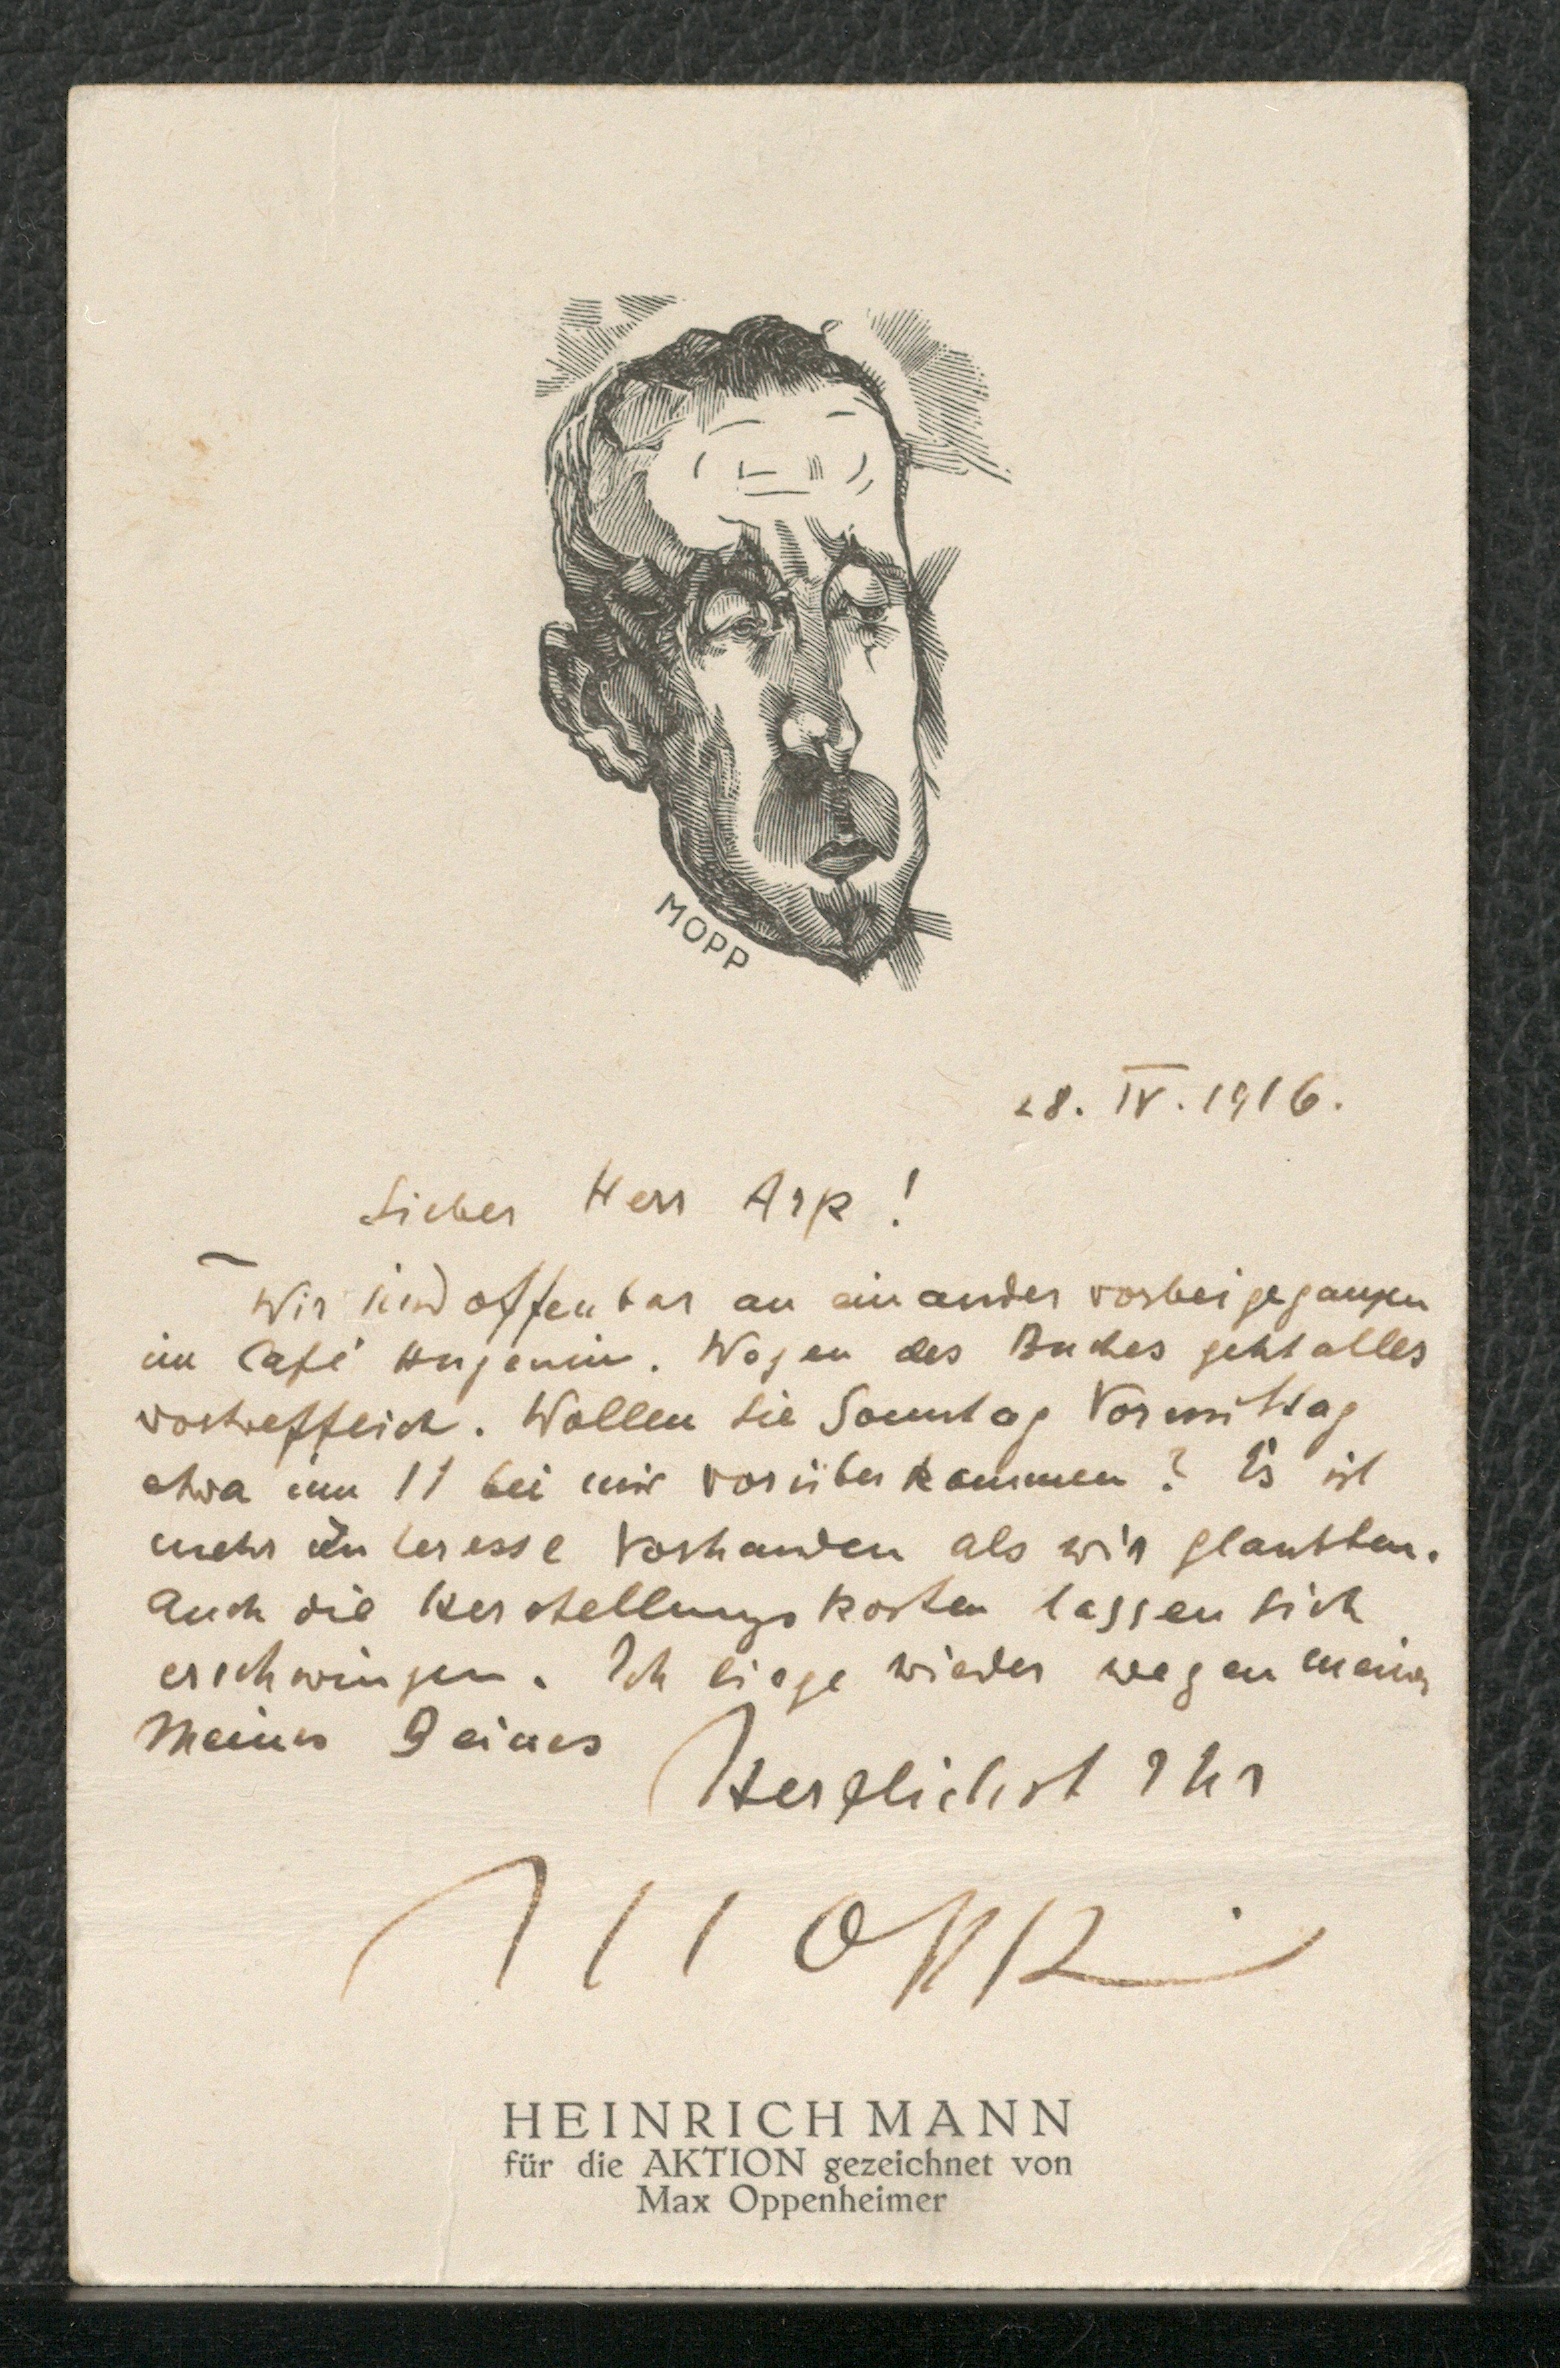 MOPP
28. IV. 1916.
Lieber Herr Arp!
Wir sind offenbar an einander vorbeigegangen
im Café Hugenin. Wegen des Buches geht alles
vortrefflich. Wollen Sie Sonntag Vormittag
etwa um 11 bei mir vorüberkommen? Es ist
mehr Interesse vorhanden als wir glaubten.
Auch die Herstellungskosten lassen sich
erschwingen. Ich liege wieder wegen meines
Meines Beines
Herzlichst Ihr
MOPP
HEINRICH MANN
für die AKTION gezeichnet von
Max Oppenheimer